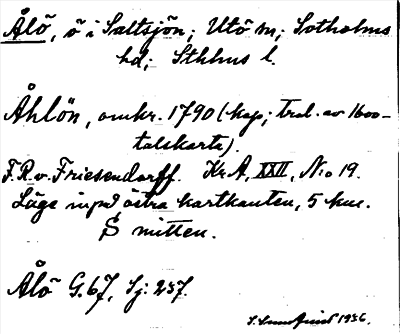 Ålö, ö i Saltsjön; Utö sn; Sotholms
hd; Sthlms l.
Åhlön, omkr. 1790 (kop; trol. av 1600-
talskarta).
F.R. v. Friesendorff. Kr.A, XXII, No 19.
Läge invid östra kartkanten, 5 km.
S mitten.
Ålö G. 67, Sj: 257.
S. Sundqvist 1936.